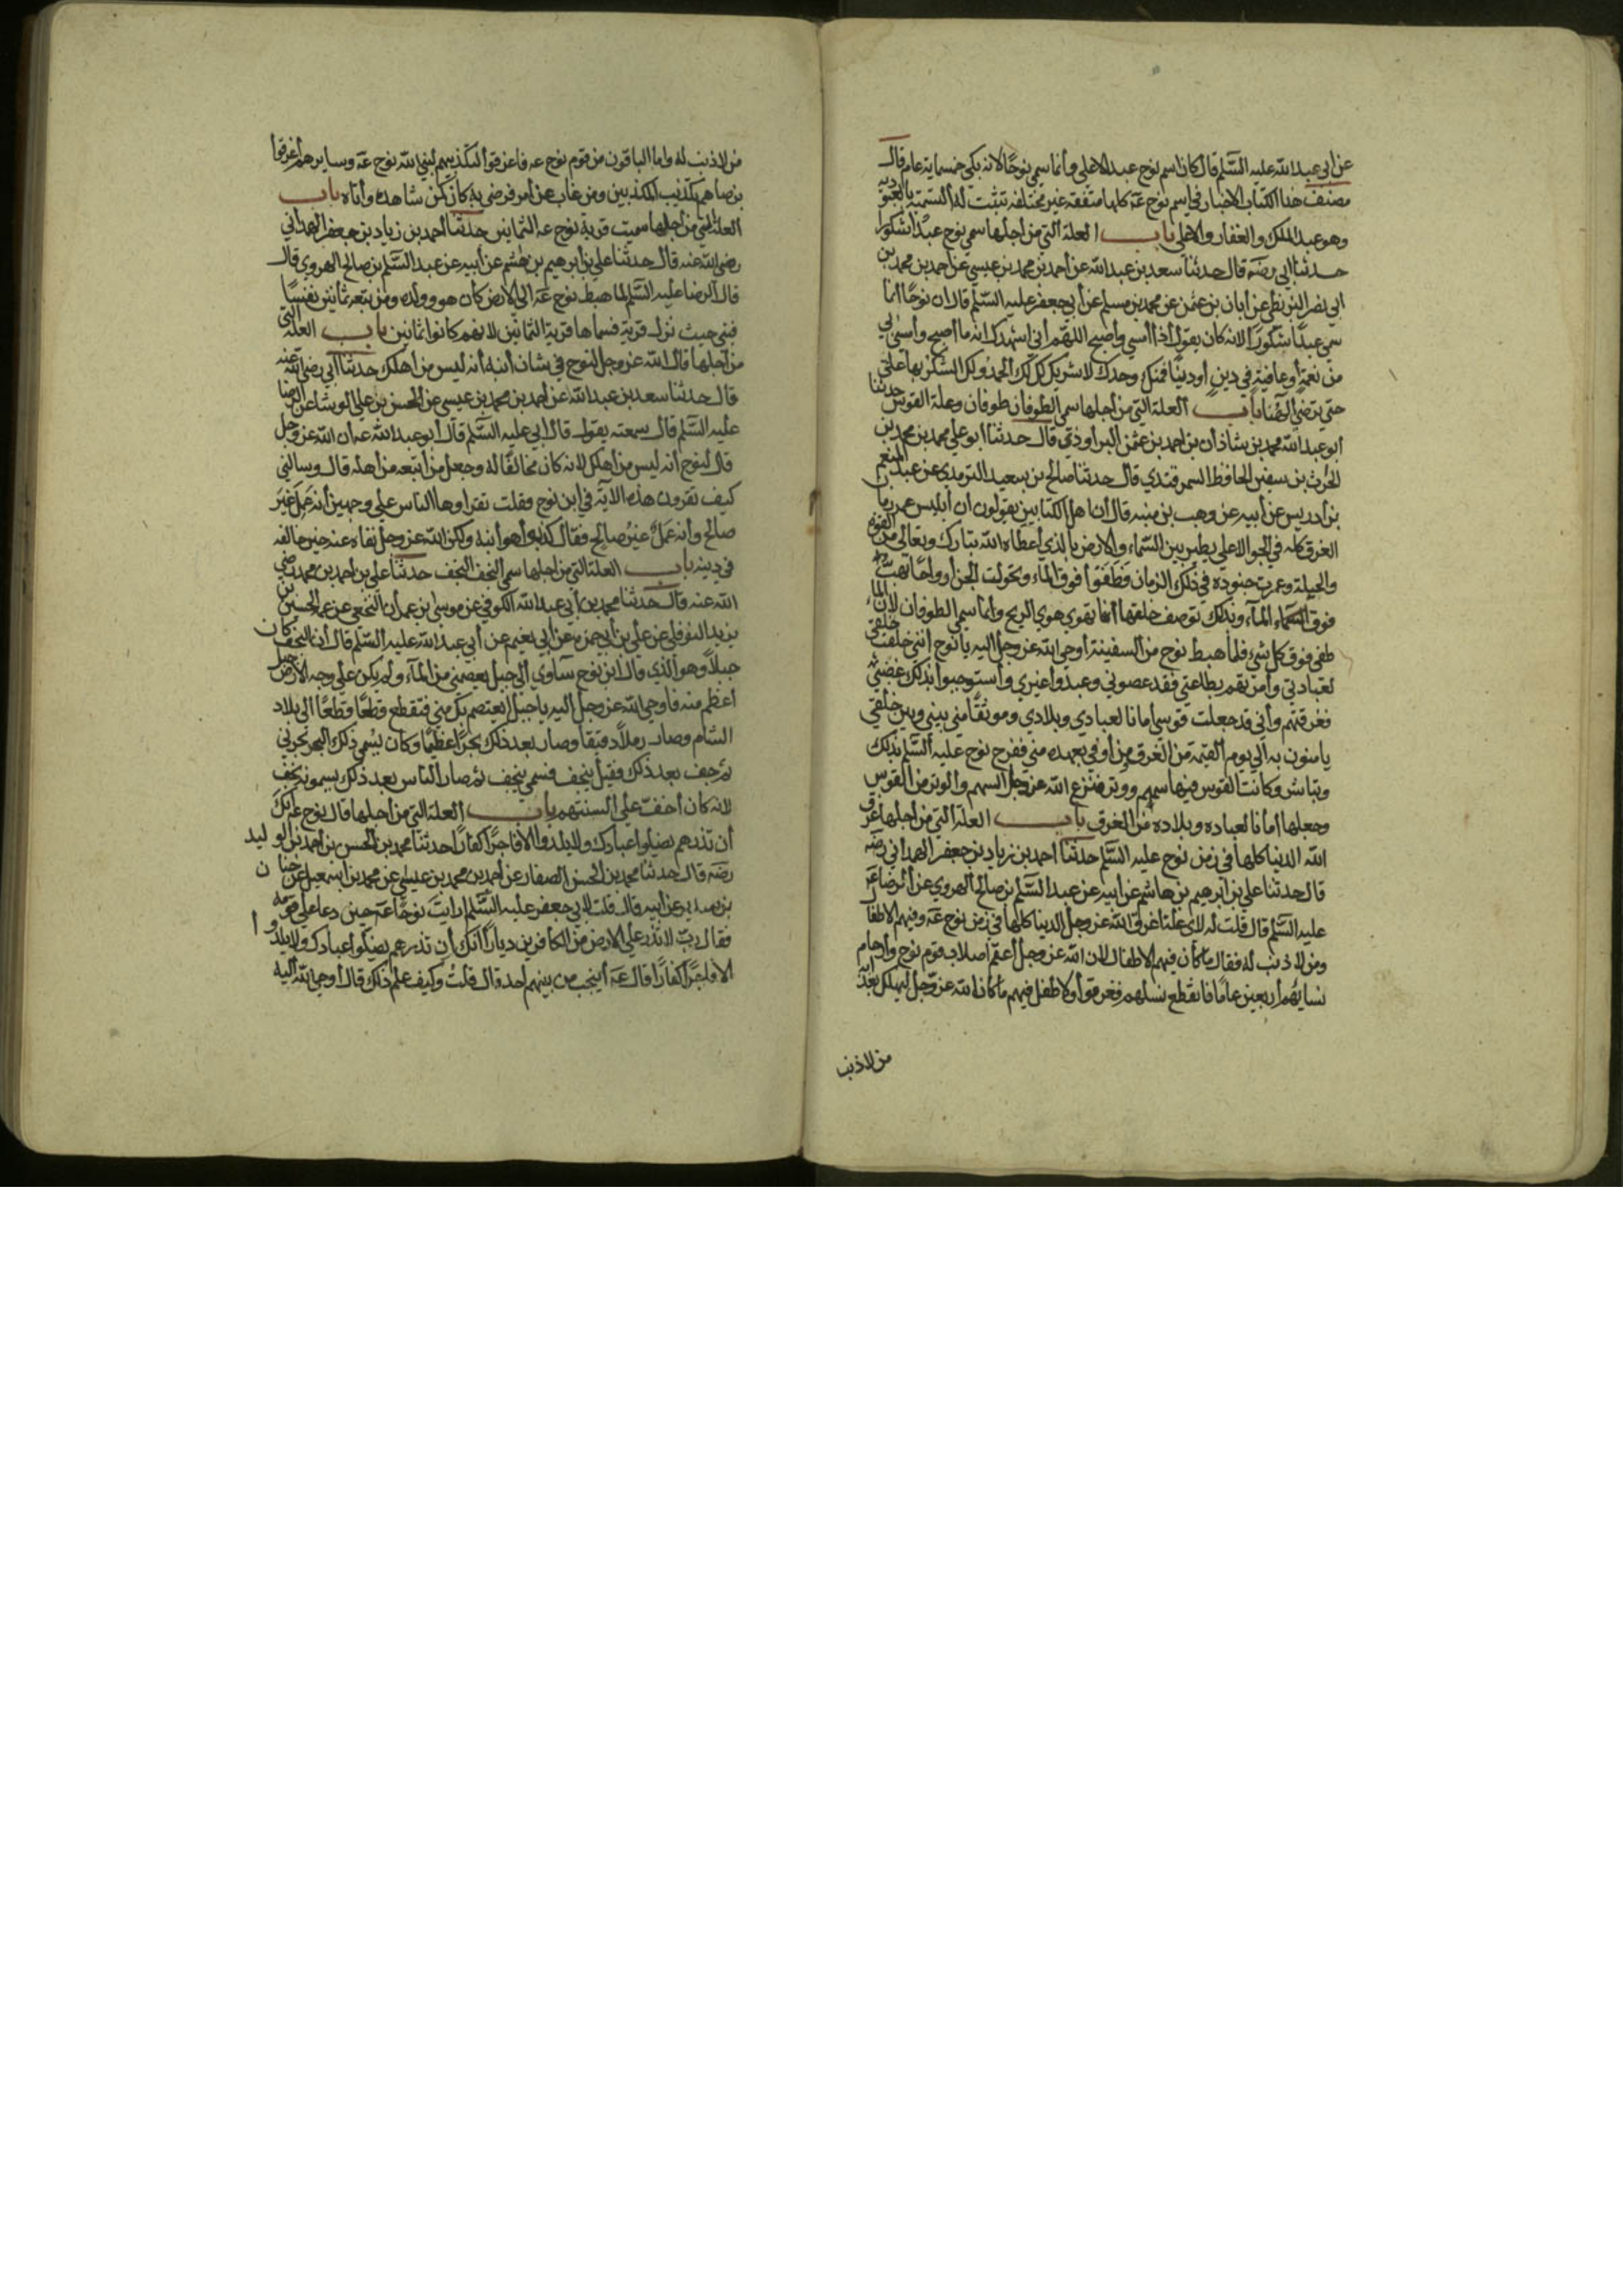 عن ابي عبد الله عليه السّلم قال كان اسم نوح عبد الاعلى وأنما سمي نوحًا لانه بكى خمسماية عام قال
مصنف هذا الكتاب الاخبار في اسم نوح عَه كلها متفقة غير مختلفة تثبت له التسمية بالعبودية
وهو عبد الملك والغفار والاعلى باب العلة التي من أجلها سمي نوح عبدًا شكورا
حدثنا ابي رضَه قال حدثنا سعد بن عبد الله عن احمد بن محمد بن عيسي عن احمد بن محمد بن
ابي نصر البزنطي عن أبان بن عثمن عن محمد بن مسلم عن أبي جعفر عليه السّلم قال ان نوحًا انما
سمي عبدًا شكورًا لانه كان يقول أذا أمسي وأصبح اللهم أني اشهدك انه ما أصبح وأمسى بي
من نعمة أو عافية في دين أو دنيا فمنك وحدك لا شريك لك لك الحمد ولك الشكر بها علي
حتي ترضي الهنا باب العلة التي من أجلها سمي الطوفان طوفان وعلة القوس حدثنا
ابو عبد الله محمد بن شاذان بن احمد بن عثمن البراوذي قال حدثنا ابو علي محمد بن محمد بن
الحرث بن سفين الحافظ السمرقندي قال حدثنا صالح بن سعيد الترمدي عن عبد المنعم
بن أدريس عن أبيه عن وهب بن منبه قال أن اهل الكتابين يقولون ان أبليس عمر زمان
الغرق كله في الجو الاعلي يطير بين السّماء والارض بالذي أعطاه الله تبارك وتعالى من القوة
والحيلة وعمرت جنوده في ذلك الزمان فطفوا فوق الماء وتحولت الجن أرواحًا تهب
فوق السماء الماء وبذلك توصف خلقها أنها تهوي هوي الريح وأنما سمي الطوفان لأن الماء
طفي فوق كل شيء فلما هبط نوح من السفينة أوحي الله عز وجل اليه يا نوح أنني خلقت خلقي
لعبادتي وأمرتهم بطاعتي فقد عصوني وعبدوا غيري وأستوجبوا بذلك غضبي
فغرقتهم وأني قد جعلت قوسي أمانا لعبادي وبلادي وموثقًا مني بيني وبين خلقي
يامنون به الي يوم القيمة من الغرق من أوفي بعهده مني ففرح نوح عليه السّلم بذلك
وتباشر وكانت القوس فيها سهم ووتر فنزع الله عز وجل السهم والوتر من القوس
وجعلها أمانا لعباده وبلاده من الغرق باب العلة التي من اجلها غرق
الله الدنيا كلها في زمن نوح عليه السّلم حدثنا احمد بن زياد بن جعفر الهمداني رضَه
قال حدثنا علي بن ابرهيم بن هاشم عن ابيه عن عبد السّلم بن صالح الهروي عن الرضا
عليه السّلم قال قلت له لاي علة اغرق الله عز وجل الدنيا كلها في زمن نوح عَه وفيهم الاطفال
ومن لا ذنب له فقال ما كان فيهم الاطفال لان الله عز وجل أعقم أصلاب قوم نوح وأرحام
نسائهم أربعين عامًا فانقطع نسلهم فغرقوا ولا طفل فيهم ما كان الله عز وجل ليهلك بعذابه
من لا ذنب
من لا ذنب له واما الباقون من قوم نوح عه فاغرقوا لتكذيبهم لنبي الله نوح عَه وسايرهم أغرقوا
برضاهم بتكذيب المكذبين ومن غاب عن أمر فرضي به كان كمن شاهده وأتاه باب
العلة التي من اجلها سميت قرية نوح عه الثمانين حدثنا أحمد بن زياد بن جعفر الهمداني
رضي الله عنه قال حدثنا علي بن أبرهيم بن هشم عن أبيه عن عبد السّلم بن صالح الهروي قال
قال الرضا عليه السّلم لما هبط نوح عَه الي الارض كان هو وولده ومن تبعه ثمانين نفسًا
فبني حيث نزل قرية فسماها قرية الثمانين لانهم كانوا ثمانين باب العلة التي
من أجلها قال الله عز وجل لنوح في شان أبنه أنه ليس من اهلك حدثنا أبي رضي الله عنه
قال حدثنا سعد بن عبد الله عن أحمد بن محمد بن عيسي عن الحسن بن علي الوشا عن الرضا
عليه السّلم قال سمعته يقول قال أبي عليه السّلم قال أبو عبد الله عه أن الله عز وجل
قال لنوح أنه ليس من أهلك لانه كان مخالفًا له وجعل من أتبعه من أهله قال وسالني
كيف تقرون هذه الاية في ابن نوح وقلت تقراوها الناس علي وجهين أنه عَمِلَ غيرَ
صالح وأنه عَمَلٌ غيرُ صالح فقال كذبوا هو أبنه ولكن الله عز وجل نفاه عنه حين خالفه
في دينه باب العلة التي من اجلها سمي النجف النجف حدثنا علي بن احمد بن محمد رضي
الله عنه قال حدثنا محمد بن أبي عبد الله الكوفي عن موسي بن عمران النخعي عن عمه الحسين بن
يزيد النوفلي عن علي بن أبي حمزه عن أبي نعيم عن أبي عبد الله عليه السّلم قال أن النجف كان
جبلاً وهو الذي قال ابن نوح سآوي الي جبل يعصمني من الماء ولم يكن علي وجه الارض جبل
أعظم منه فاوحي الله عز وجل اليه يا جبل أيعتصم بك مني فتقطع قطعًا قطعًا الي بلاد
الشام وصار رملاً دقيقا وصار بعد ذلك بحرًا عظيمًا وكان يسمي ذلك البحر بحر ني
ثم جف بعد ذلك فقيل ني جف فسمي نيجف ثم صار الناس بعد ذلك يسمونه نجف
لانه كان أخف علي السنتهم باب العلة التي من اجلها قال نوح عه أنك
أن تذرهم يضلوا عبادك ولا يلدوا الا فاجرًا كفارًا حدثنا محمد بن الحسن بن أحمد بن الوليد
رضَه قال حدثنا محمد بن الحسن الصفار عن أحمد بن محمد بن عيسي عن محمد بن اسمعيل عن حنان
بن سدير عن أبيه قال قلت لابي جعفر عليه السّلم أرايت نوحًا عَه حين دعا علي قومه
فقال رب لا تذر علي الارض من الكافرين ديارًا أنك أن تذرهم يضلوا عبادك ولا يلدوا
الا فاجرًا كفارًا قال عَه أينجب من بينهم احد قال قلت وكيف علم ذلك قال أوحي الله أليه